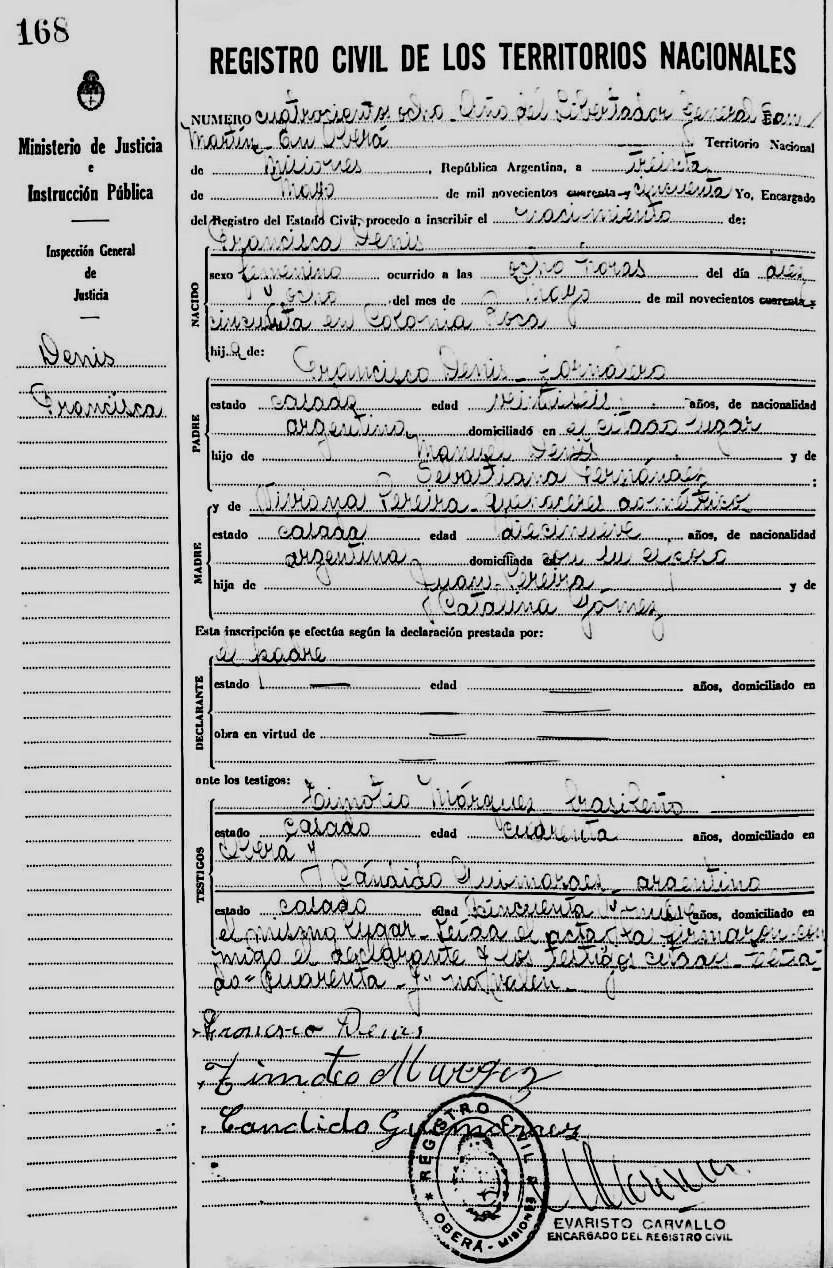 168
Ministerio de Justicia
e
Instrucción Pública
Inspección General
de
Justicia
Denis
Francisca
REGISTRO CIVIL DE LOS TERRITORIOS NACIONALES
NUMERO cuatrocientos ocho - Año del Libertador General San
Martín - En Oberá Territorio Nacional
de Misiones, República Argentina, a treinta
de Mayo de mil novecientos cuarenta y cincuenta Yo, Encargado
del Registro del Estado Civil, procedo a inscribir el nacimiento de:
NACIDO
Francisca Denis
sexo femenino ocurrido a las ocho horas del día diez
y ocho del mes de Mayo de mil novecientos cuarenta y
cincuenta en Colonia
hija de:
PADRE
Francisco Denis - jornalero
estado casado edad años, de nacionalidad
argentina domiciliado en el citado lugar
hijo de Manuel Denis y de
Sebastiana Fernández ;
MADRE
y de Viviana Pereira - quehaceres doméstico
estado casada edad diecinueve años, de nacionalidad
argentina domiciliada con su esposo
hija de Juan Pereira y de
Catalina Gómez
Esta inscripción se efectúa según la declaración prestada por:
DECLARANTE
el padre
estado edad años, domiciliado en
obra en virtud de
ante los testigos:
TESTIGOS
Timoteo Márques brasileño
estado casado edad cuarenta años, domiciliado en
Oberá y
Cándido Guimaraes - argentino
estado casado edad cincuenta y nueve años, domiciliado en
el mismo lugar - Leída el acta la firmaron con
migo el declarante y los testigos - Testa-
do "cuarenta - y" no valen -
Francisco Denis
Timoteo Marquez
Candido
REGISTRO CIVIL
OBERÁ - MISIONES
EVARISTO CARVALLO
ENCARGADO DEL REGISTRO CIVIL